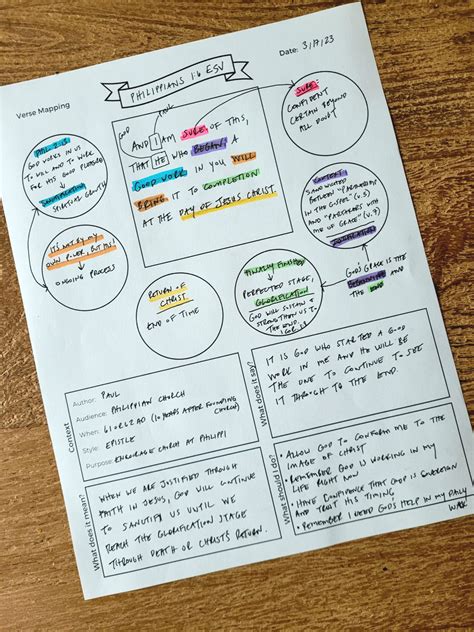 Verse Mapping
Date: 3/17/23
PHILIPPIANS 1:6 ESV
GOD
PAUL
AND I AM SURE OF THIS,
THAT HE WHO BEGAN A
GOOD WORK IN YOU WILL
BRING IT TO COMPLETION
AT THE DAY OF JESUS CHRIST.
SURE:
CONFIDENT
CERTAIN BEYOND
ALL DOUBT
PHIL 2:13
GOD WORKS IN US
TO WILL AND TO WORK
FOR HIS GOOD PLEASURE
SANCTIFICATION
SPIRITUAL GROWTH
CONTEXT:
SANDWICHED
BETWEEN "PARTNERSHIP
IN THE GOSPEL" (V.5)
AND "PARTAKERS WITH
ME OF GRACE" (V.7)
IT'S NOT BY MY
OWN POWER, BUT HIS!
ONGOING PROCESS
RETURN OF
CHRIST
END OF TIME
FINALLY FINISHED
PERFECTED STAGE,
GLORIFICATION
GOD WILL SUSTAIN &
STRENGTHEN US TO
THE END
1 COR 1:8
GOD'S GRACE IS THE
BEGINNING AND
THE END
Context
Author: PAUL
Audience: PHILIPPIAN CHURCH
When: 61 OR 62 AD (10 YEARS AFTER FOUNDING
CHURCH)
Style: EPISTLE
Purpose: ENCOURAGE CHURCH AT PHILIPPI
What does it say?
IT IS GOD WHO STARTED A GOOD
WORK IN ME AND HE WILL BE
THE ONE TO CONTINUE TO SEE
IT THROUGH TO THE END.
What does it mean?
WHEN WE ARE JUSTIFIED THROUGH
FAITH IN JESUS, GOD WILL CONTINUE
TO SANCTIFY US UNTIL WE
REACH THE GLORIFICATION STAGE
THROUGH DEATH OR CHRIST'S RETURN.
What should I do?
• ALLOW GOD TO CONFORM ME TO THE
IMAGE OF CHRIST
• REMEMBER GOD IS WORKING IN MY
LIFE RIGHT NOW
• HAVE CONFIDENCE THAT GOD IS SOVEREIGN
AND TRUST HIS TIMING
• REMEMBER I NEED GOD'S HELP IN MY DAILY
WALK